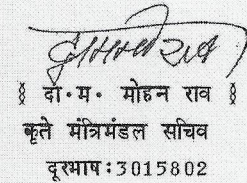 § दा॰म॰ मोहन राव §
कृते मंत्रिमंडल सचिव
दूरभाष:3015802